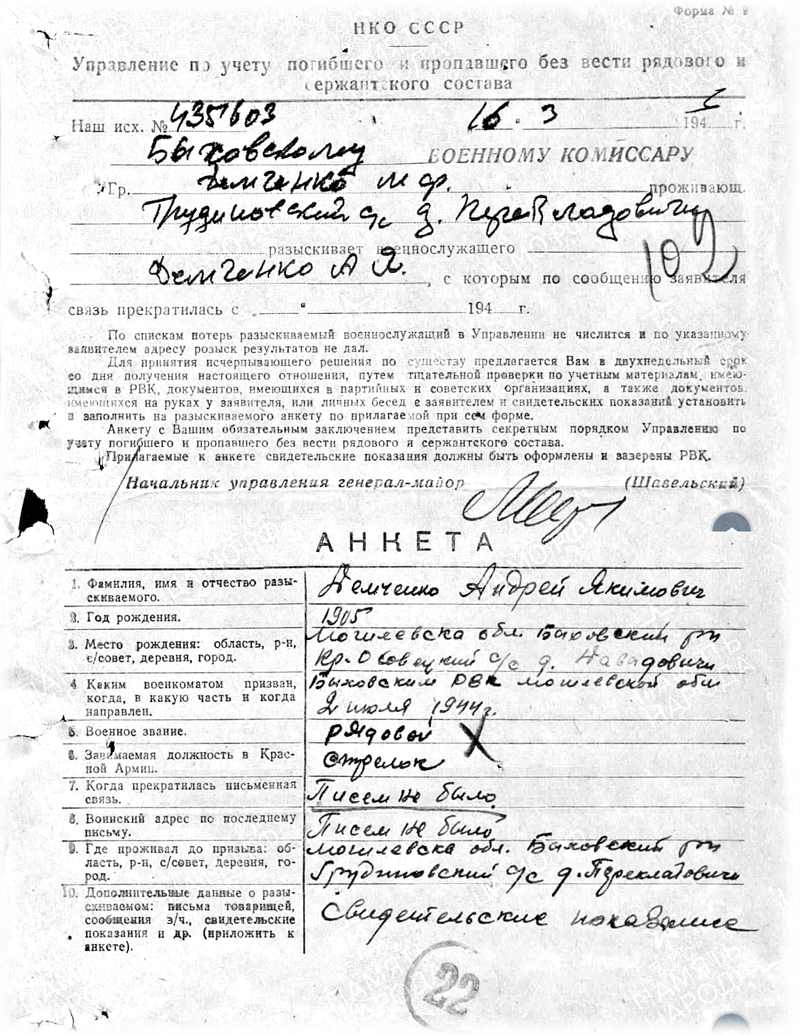 Форма № 9
НКО СССР
Управление по учету погибшего и пропавшего без вести рядового и
сержантского состава
Наш исх. № 435603 16. 3 194 г.
Быховскому ВОЕННОМУ КОМИССАРУ
Гр. Демченко М Ф. проживающ.
Грудиновский с/с д.
разыскивает военнослужащего
102
Демченко А Я. , с которым по сообщению заявителя
связь прекратилась с „ “ 194 г.
По спискам потерь разыскиваемый военнослужащий в Управлении не числится и по указанному
заявителем адресу розыск результатов не дал.
Для принятия исчерпывающего решения по существу предлагается Вам в двухнедельный срок
со дня получения настоящего отношения, путем тщательной проверки по учетным материалам, имею-
щимся в РВК, документов, имеющихся в партийных и советских организациях, а также документов,
имеющихся на руках у заявителя, или личных бесед с заявителем и свидетельских показаний установить
и заполнить на разыскиваемого анкету по прилагаемой при сем форме.
Анкету с Вашим обязательным заключением представить секретным порядком Управлению по
учету погибшего и пропавшего без вести рядового и сержантского состава.
Прилагаемые к анкете свидетельские показания должны быть оформлены и заверены РВК.
Начальник управления генерал-майор (Шавельский)
АНКЕТА
1. Фамилия, имя и отчество разы-
скиваемого.
Демченко Андрей Якимович
2. Год рождения.
1905
3. Место рождения: область, р-н,
с/совет, деревня, город.
Могилевска обл. Быховский рн
Кр-Осовецкий с/с д. Давидовичи
4. Каким военкоматом призван,
когда, в какую часть и когда
направлен.
Быховским РВК могилевской обл
2 июля 1944г.
5. Военное звание.
рядовой
6. Занимаемая должность в Крас-
ной Армии.
стрелок
7. Когда прекратилась письменная
связь.
Писем не было
8. Воинский адрес по последнему
письму.
Писем не было
9. Где проживал до призыва: об-
ласть, р-н, с/совет, деревня, го-
род.
Могилевска обл. Быховский рн
Грудиновский с/с д.
10. Дополнительные данные о разы-
скиваемом: письма товарищей,
сообщения в/ч., свидетельские
показания и др. (приложить к
анкете).
Свидетельские показание
22